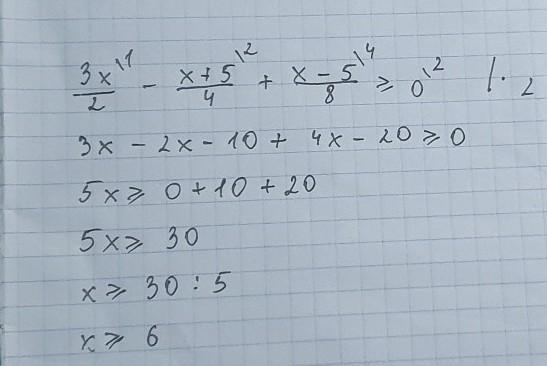 3x\1/2 - x+5\2/4 + x-5\4/8 ⩾ 0\2 |·2
3x - 2x - 10 + 4x - 20 ⩾ 0
5x ⩾ 0 + 10 + 20
5x ⩾ 30
x ⩾ 30 : 5
x ⩾ 6